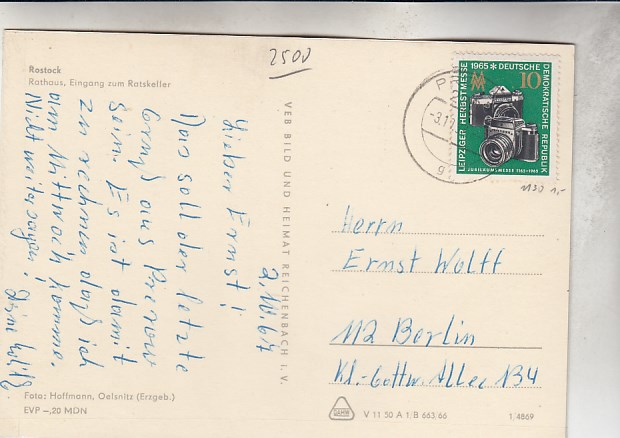 Rostock
Rathaus, Eingang zum Ratskeller
2500
2.10.67
Lieber Ernst!
Das soll der letzte
Gruß aus Prerow
sein. Es ist damit
zu rechnen daß ich
am Mittwoch komme.
Nicht weitersagen!
Foto: Hoffmann, Oelsnitz (Erzgeb.)
EVP –,20 MDN
VEB BILD UND HEIMAT REICHENBACH I. V.
LEIPZIGER HERBSTMESSE 1965 * DEUTSCHE DEMOKRATISCHE REPUBLIK
MM
10
JUBILÄUMSMESSE 1165-1965
1130 1,-
Herrn
Ernst Wolff
112 Berlin
Kl.-Gottw. Allee 134
V 11 50 A 1 B 663/66
1/4869